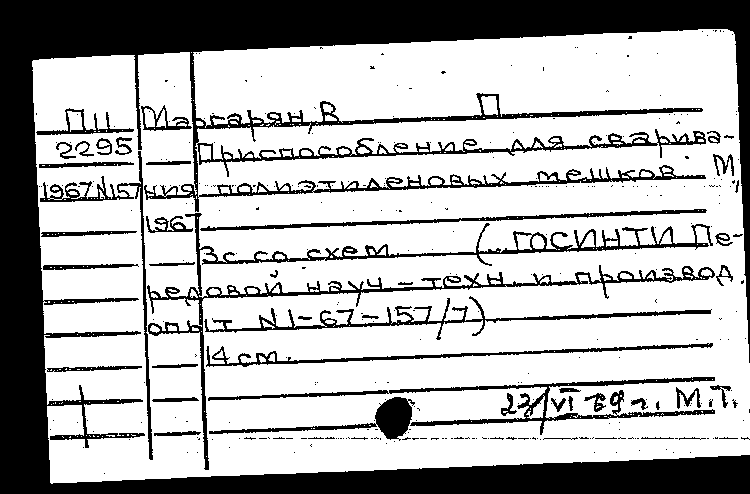 ПЦ Маргарян, В П
2295 Приспособление для сварива-
1967 N157 ния полиэтиленовых мешков. М,
1967
3с со схем. (ГОСИНТИ Пе-
редовой науч-техн. и производ.
опыт N1-67-157/7)
14 см.
23/VI 69 г. М.Т.